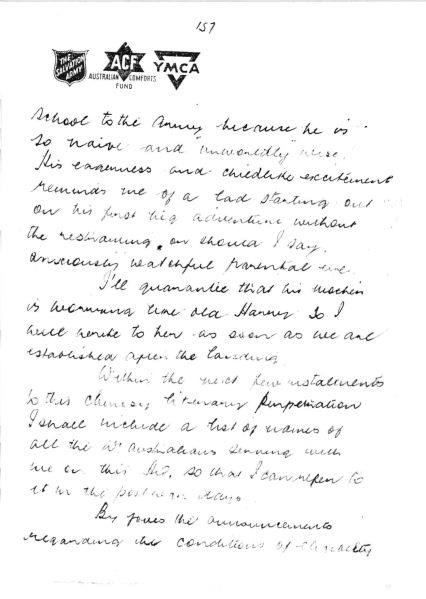 157
THE SALVATION ARMY
ACF
AUSTRALIAN COMFORTS FUND
YMCA
school to the Army because he is
so naive and "unworldly" wise.
His eagerness and childlike excitement
reminds me of a lad starting out
on his first big adventure without
the restraining, or should I say,
anxiously watchful parental eye.
I'll guarantee that his mother
is worrying like old Harry so I
will write to her as soon as we are
established after the landing.
Within the next few installments
to this clumsy literary perpetration
I shall include a list of names of
all the W. Australians serving with
me on this so that I can refer to
it in the post war days.
By joves the announcements
regarding the conditions of